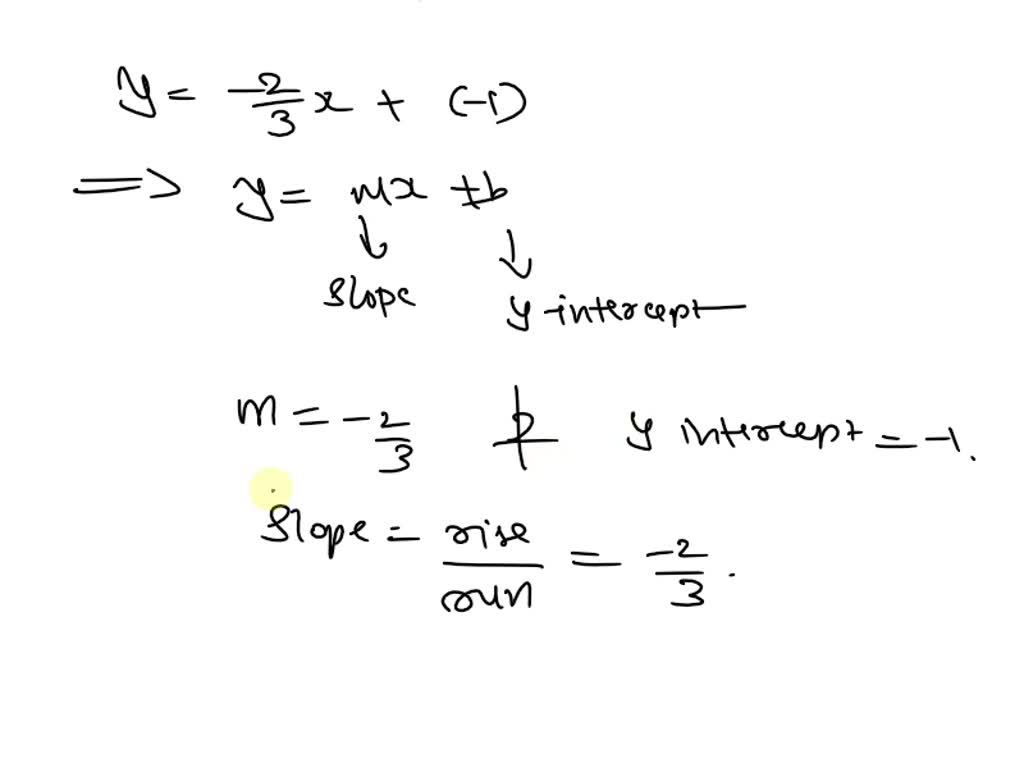 y = -2/3 x + (-1)
=> y = mx + b
↓ ↓
Slope y-intercept
m = -2/3 y intercept = -1.
Slope = rise/run = -2/3.